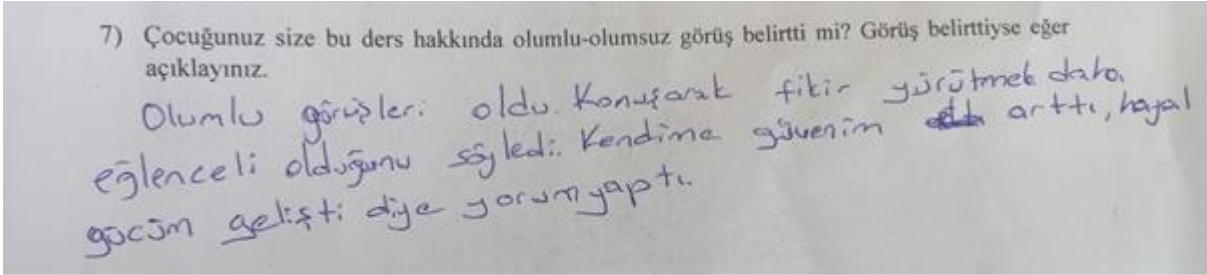 7) Çocuğunuz size bu ders hakkında olumlu-olumsuz görüş belirtti mi? Görüş belirttiyse eğer
açıklayınız.
Olumlu görüşleri oldu. Konuşarak fikir yürütmek daha
eğlenceli olduğunu söyledi. Kendime güvenim arttı, hayal
gücüm gelişti diye yorum yaptı.